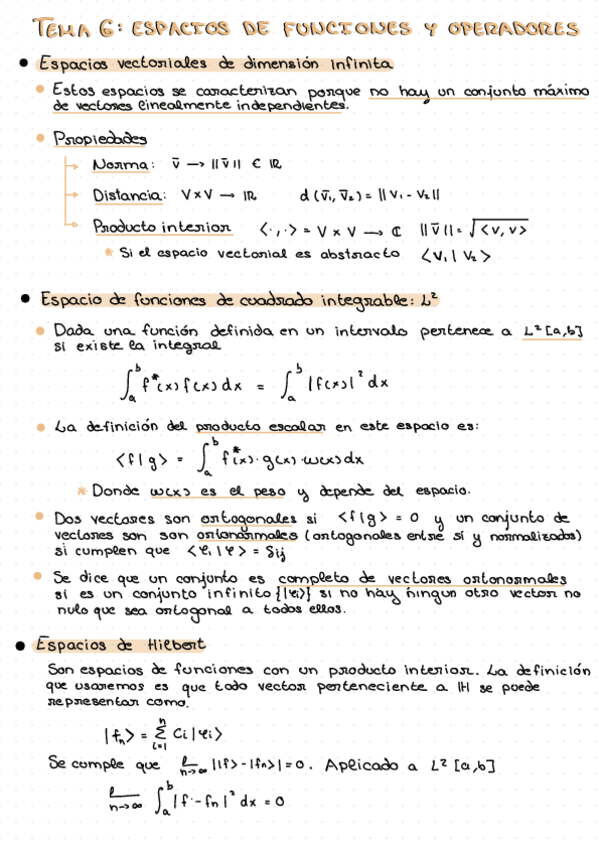 TEMA 6: ESPACIOS DE FUNCIONES Y OPERADORES
• Espacios vectoriales de dimensión infinita
• Estos espacios se caracterizan porque no hay un conjunto máximo
de vectores linealmente independientes.
• Propiedades
→ Norma: v̄ → ||v̄|| ∈ ℝ
→ Distancia: V×V → ℝ d(v̄₁, v̄₂) = ||v₁ - v₂||
→ Producto interior ⟨·,·⟩ = V × V → ℂ ||v̄|| = √⟨v,v⟩
* Si el espacio vectorial es abstracto ⟨v₁|v₂⟩
• Espacio de funciones de cuadrado integrable: L²
• Dada una función definida en un intervalo pertenece a L²[a,b]
si existe la integral
∫ₐᵇ f*(x) f(x) dx = ∫ₐᵇ |f(x)|² dx
• La definición del producto escalar en este espacio es:
⟨f|g⟩ = ∫ₐᵇ f*(x)·g(x)·w(x)dx
* Donde w(x) es el peso y depende del espacio.
• Dos vectores son ortogonales si ⟨f|g⟩ = 0 y un conjunto de
vectores son son ortonormales (ortogonales entre sí y normalizados)
si cumplen que ⟨φᵢ|φ⟩ = δij
• Se dice que un conjunto es completo de vectores ortonormales
si es un conjunto infinito {|φᵢ⟩} si no hay ningun otro vector no
nulo que sea ortogonal a todos ellos.
• Espacios de Hilbert
Son espacios de funciones con un producto interior. La definición
que usaremos es que todo vector perteneciente a ℍ se puede
representar como.
|fₙ⟩ = Σⁿᵢ₌₁ Cᵢ|φᵢ⟩
Se cumple que lim n→∞ ||f⟩-|fₙ⟩| = 0. Aplicado a L²[a,b]
lim n→∞ ∫ₐᵇ |f - fₙ|² dx = 0